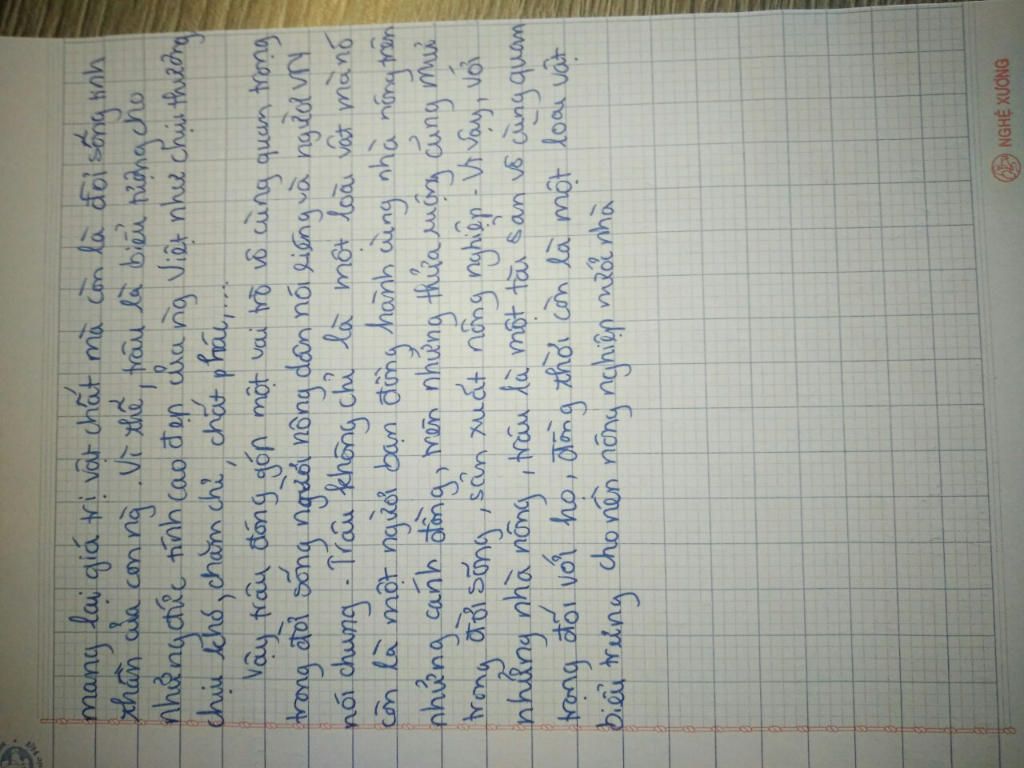 mang lại giá trị vật chất mà còn là đời sống tinh
thần của con ng. Vì thế, trâu là biểu tượng cho
những đức tính cao đẹp của ng Việt như chịu thương
chịu khó, chăm chỉ, chất phác,...
Vậy trâu đóng góp một vai trò vô cùng quan trọng
trong đời sống người nông dân nói riêng và người VN
nói chung. Trâu không chỉ là một loài vật mà nó
còn là một người bạn đồng hành cùng nhà nông trên
những cánh đồng, trên những thửa ruộng cũng như
trong đời sống, sản xuất nông nghiệp. Vì vậy, với
những nhà nông, trâu là một tài sản vô cùng quan
trọng đối với họ, đồng thời còn là một loài vật
biểu trưng cho nền nông nghiệp nước nhà
NGHỆ XƯƠNG